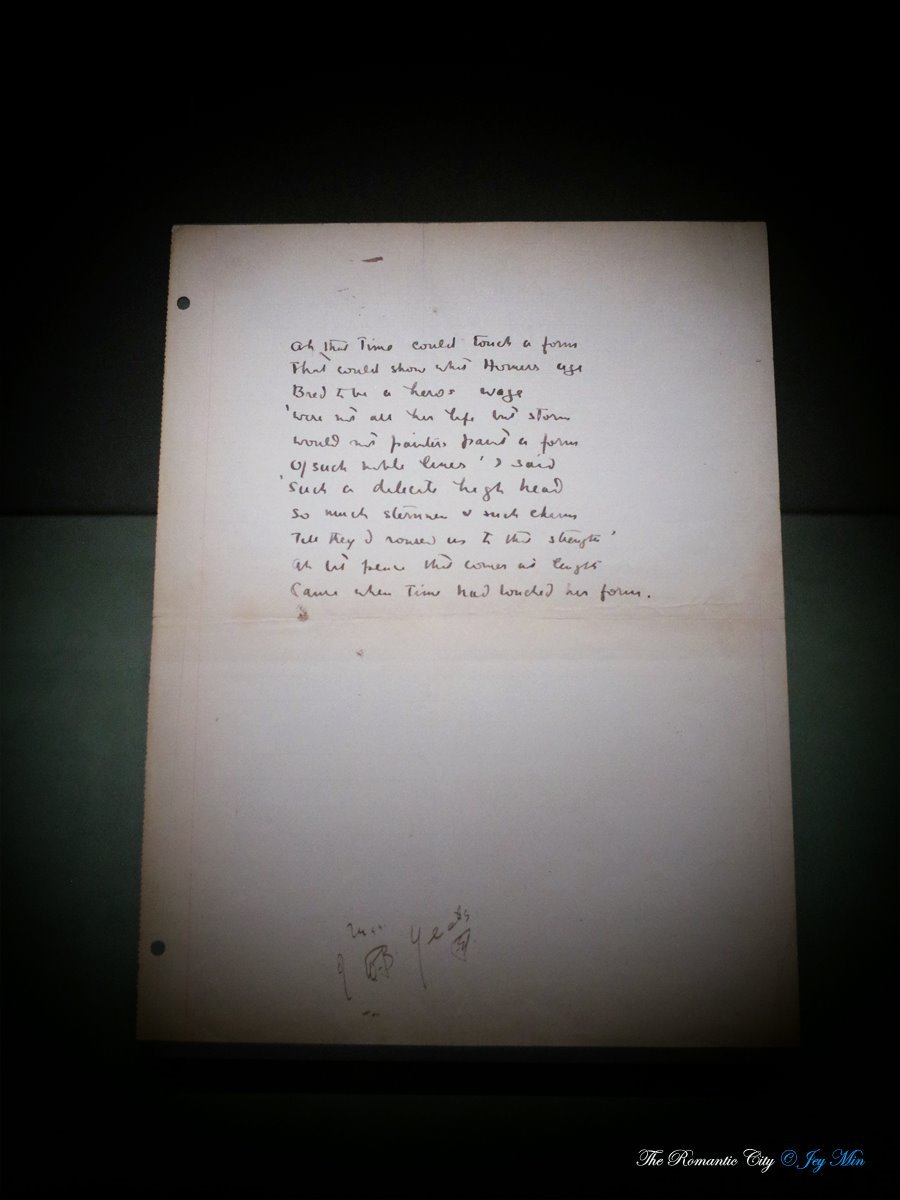 Ah that Time could touch a form
That could show what Homers age
Bred to be a heros wage
'Were not all her life but storm
Would not painters paint a form
Of such noble lines' I said
'Such a delicate high head
So much sternness & such charm
Till they had
roused us to that strength'
Ah but peace that comes at length
Came when Time had touched her form.
Yeats
The Romantic City © Jey Min